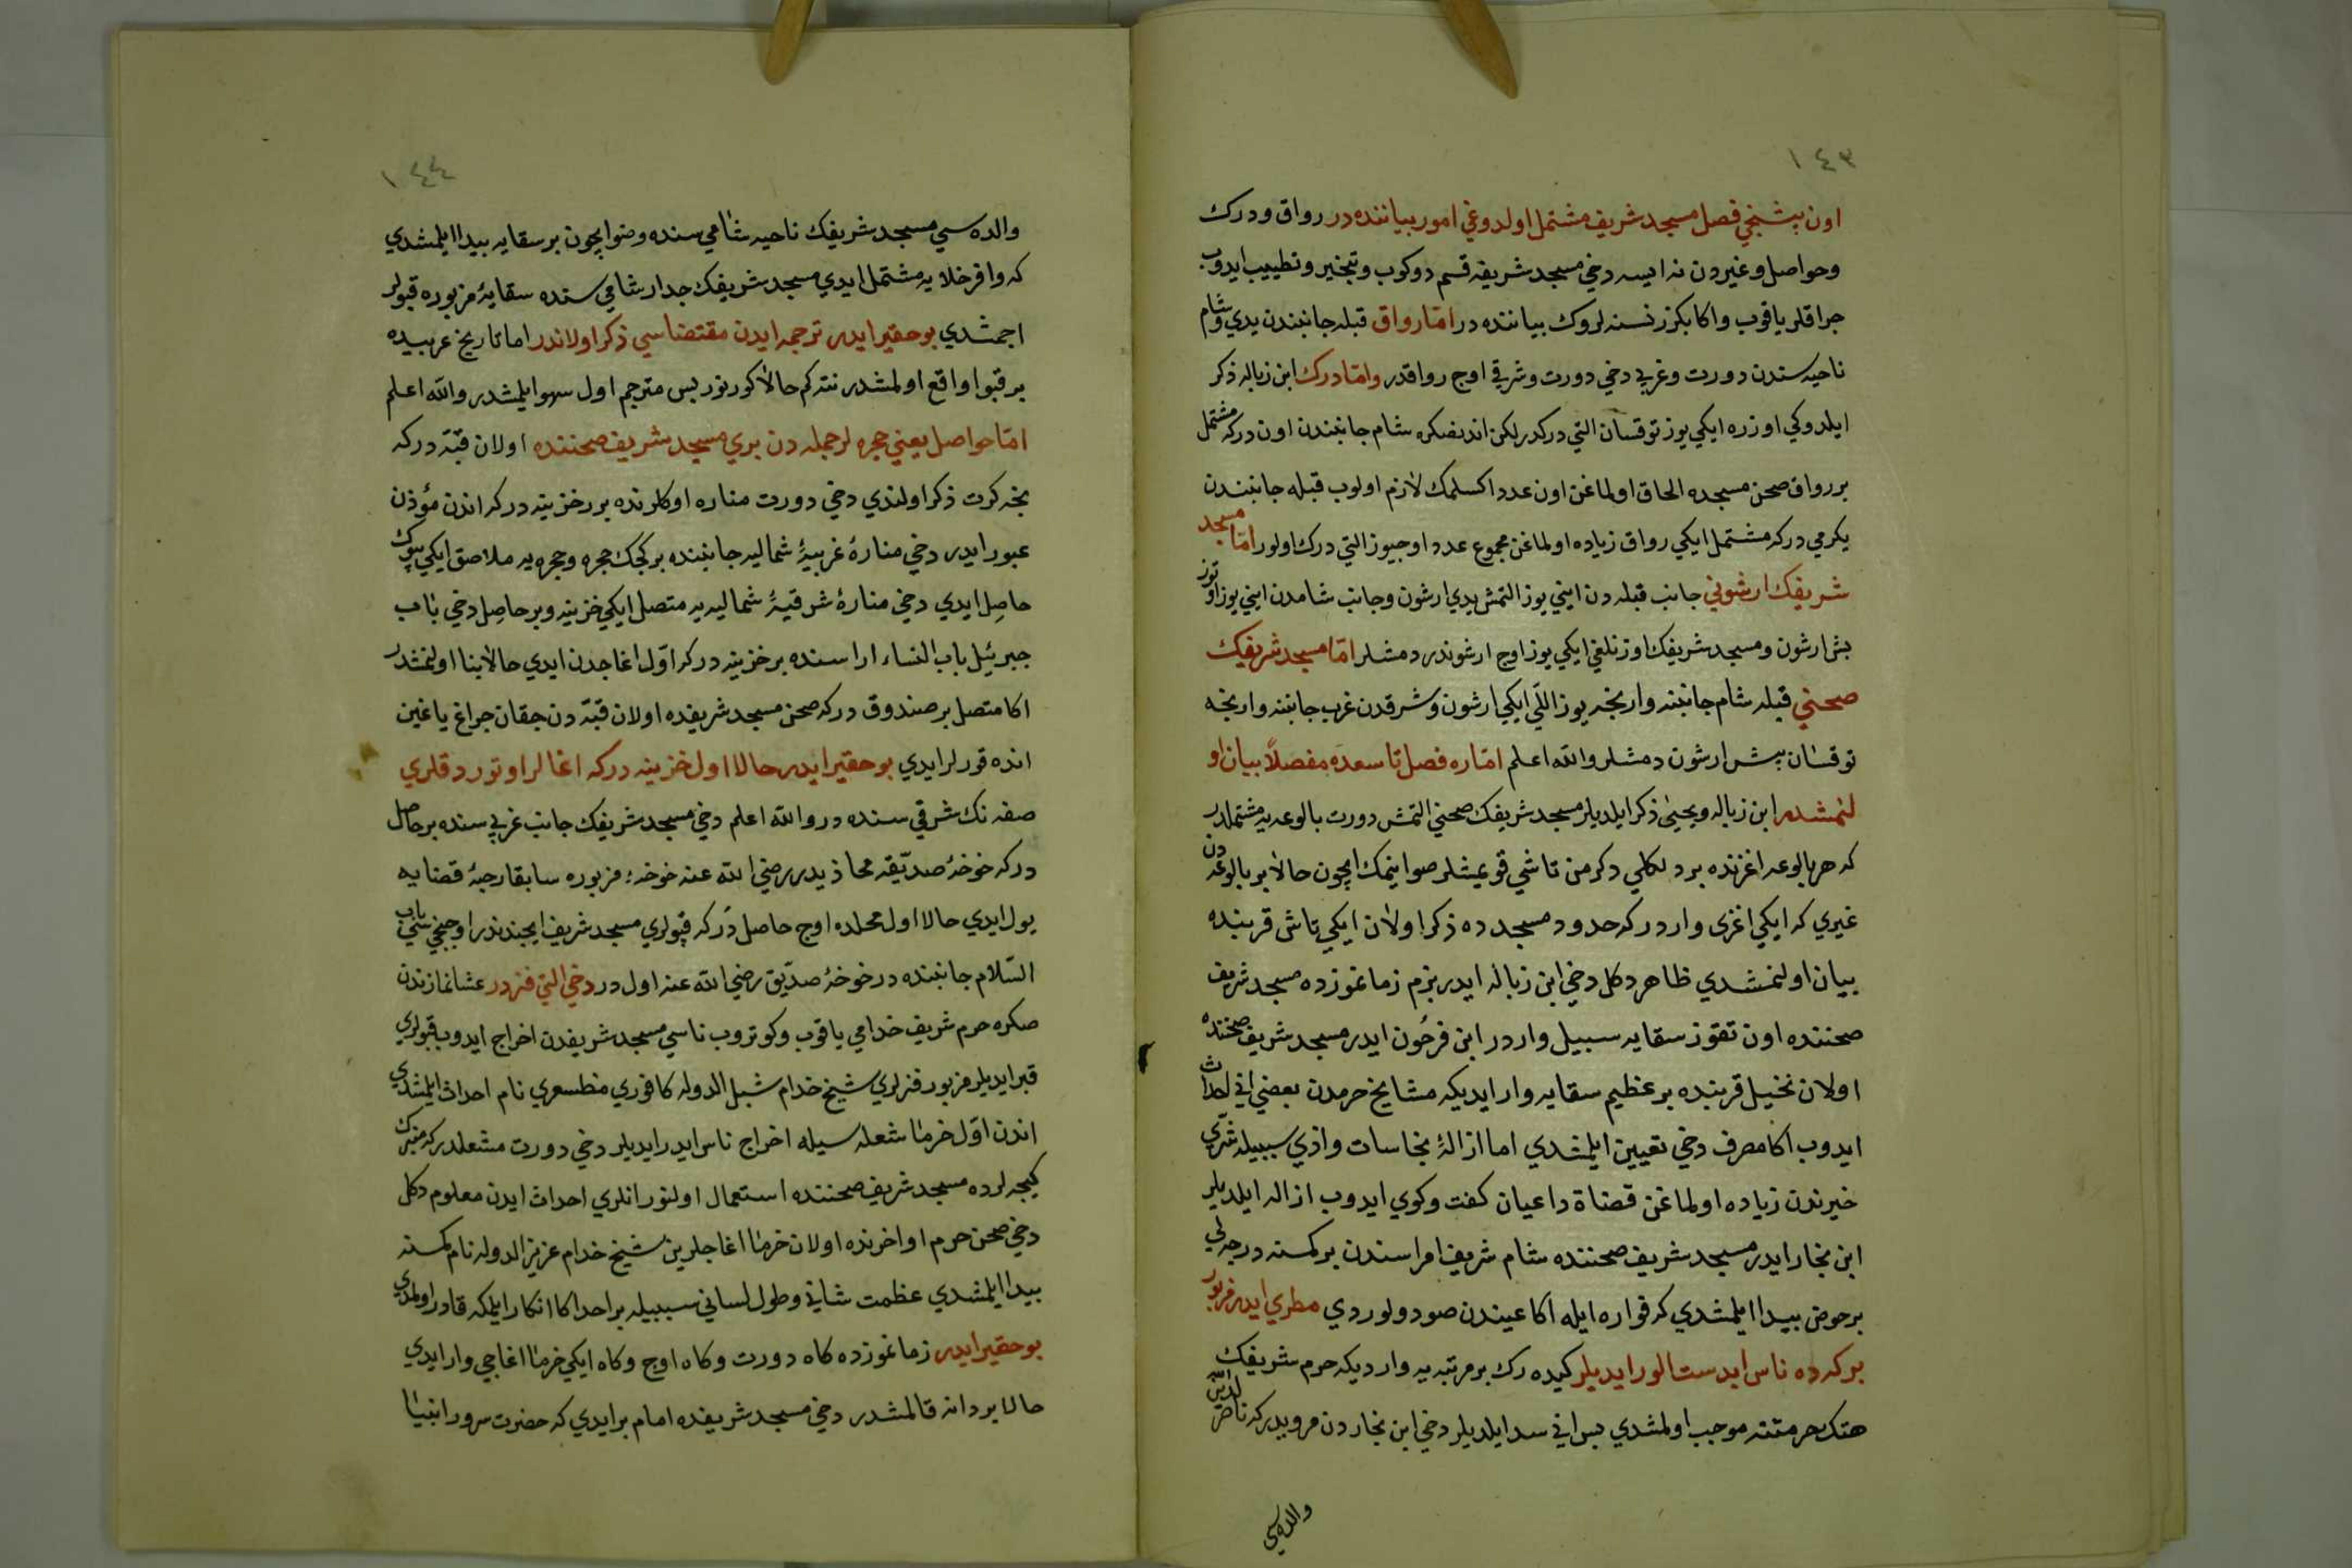 ١٤٣
اون بشنجي فصل مسجد شريف مشتمل اولدوغي امور بياننده در رواق و درك
وحواصل وغيردن نه ايسه دخي مسجد شريفه قسم دوكوب وتبخير وتطييب ايدوب
چراقلر ياقوب واكا بكزر نسنه لروك بياننده در امّا رواق قبله جانبندن يدي وشام
ناحيه سندن دورت وغربي دخي دورت وشرقي اوچ رواقدر وامّا درك ابن زباله ذكر
ايلدوكي اوزره ايكي يوز توقسان التي دركدر لكن اندنصكره شام جانبندن اون دركه مشتمل
بر رواق صحن مسجده الحاق اولماغن اون عدد اكسلمك لازم اولوب قبله جانبندن
يكرمي دركه مشتمل ايكي رواق زياده اولماغن مجموع عدد اوچيوز التي درك اولور امّا مسجد
شريفك ارشوني جانب قبله دن ايني يوز التمش يدي ارشون وجانب شامدن ايني يوز اوتوز
بش ارشون ومسجد شريفك اوزنلغي ايكي يوز اوچ ارشوندر دمشلر امّا مسجد شريفك
صحني قبله شام جانبنه وارنجه يوز اللّي ايكي ارشون وشرقدن غرب جانبنه وارنجه
توقسان بش ارشون دمشلر والله اعلم امّا ره فصل تاسعده مفصلاً بيان او
لنمشدر ابن زباله ويحيى ذكر ايلديلر مسجد شريفك صحني التمش دورت بالوعه يه مشتملدر
كه هر بالوعه اغزنده بر دلكلي دكرمن تاشي قويمشلر صو اينمك ايچون حالا بر بالوعه دن
غيري كه ايكي اغزى واردر كه حدود مسجد ده ذكر اولان ايكي تاش قربنده
بيان اولنمشدي ظاهر دكل دخي ابن زباله ايدر بزم زمانموزده مسجد شريف
صحننده اون تقوز سقايه سبيل واردر ابن فرحون ايدر مسجد شريف صحننده
اولان نخيل قربنده بر عظيم سقايه وار ايديكه مشايخ حرمدن بعضي اني احداث
ايدوب اكا مصرف دخي تعيين ايلمشدي اما ازالۀ نجاسات واذي سببيله شرّي
خيرندن زياده اولماغن قضاة داعيان كفت وكوي ايدوب ازاله ايلديلر
ابن نجار ايدر مسجد شريف صحننده شام شريف امراسندن بر كسنه درجه لي
بر حوض بيدا ايلمشدي كه فواره ايله اكا عيندن صو دولوردي مطري ايدر مزبور
بركه ده ناس ابدست الور ايديلر كيده رك بر مرتبه يه وارديكه حرم شريفك
هتك حرمتنه موجب اولمشدي پس اني سد ايلديلر دخي ابن نجار دن مرويدر كه ناصر لدين الله
والده سي
١٤٤
والده سي مسجد شريفك ناحيه شامي سنده وضو ايچون بر سقايه بيدا ايلمشدي
كه وافر خلايه مشتمل ايدي مسجد شريفك جدار شامي سنده سقايۀ مزبوره قبولر
اچمشدي بو حقير ايدر ترجمه ايدن مقتضاسي ذكر اولاندر اما تاريخ عربيده
بر قبو واقع اولمشدر نته كم حالا كورنور پس مترجم اول سهو ايلمشدر والله اعلم
امّا حواصل يعني حجره لر جمله دن بري مسجد شريف صحننده اولان قبّه در كه
نجه كرت ذكر اولندي دخي دورت مناره اوكلرنده بر رخزينه در كه اندن مؤذن
عبور ايدر دخي منارۀ غربيۀ شماليه جانبنده بر كجك حجره و حجره يه ملاصق ايكي بيوك
حاصل ايدي دخي منارۀ شرقيۀ شماليه يه متصل ايكي خزينه وبر حاصل دخي باب
جبرئيل باب النساء اراسنده بر خزينه در كه اوّل اغاجدن ايدي حالا بنا اولنمشدر
اكا متصل بر صندوق در كه صحن مسجد شريفده اولان قبّه دن چقان چراغ ياغين
انده قورلر ايدي بو حقير ايدر حالا اول خزينه در كه اغالر اوتوردقلري
صفه نك شرقي سنده در والله اعلم دخي مسجد شريفك جانب غربي سنده بر حاصل
در كه خوخۀ صدّيقه محاذيدر رضي الله عنه خوخۀ مزبوره سابقا رحبۀ قضايه
يول ايدي حالا اول محلده اوچ حاصل در كه قپولري مسجد شريف ايچندندر اوچنجي سي باب
السّلام جانبنده در خوخۀ صدّيق رضي الله عنه اول در دخي التي فنر در عشا نمازندن
صكره حرم شريف خدامي ياقوب وكوتروب ناسي مسجد شريفدن اخراج ايدوب قبولري
قپر ايديلر مزبور فنرلري شيخ خدام شبل الدوله كافوري مظسعري نام احداث ايلمشدي
اندن اوّل خرما شعله سيله اخراج ناس ايدر ايديلر دخي دورت مشعلدر كه متبرك
كيجه لرده مسجد شريف صحننده استعمال اولنور انلري احداث ايدن معلوم دكل
دخي صحن حرم اواخرنده اولان خرما اغاجلرين شيخ خدام عزيز الدوله نام كسنه
بيدا ايلمشدي عظمت شاني وطول لساني سببيله بر احد اكا انكار ايلمكه قادر اولمدي
بو حقير ايدر زمانموزده كاه دورت وكاه اوچ وكاه ايكي خرما اغاجي وار ايدي
حالا بر دانه قالمشدر دخي مسجد شريفده امام بر ايدي كه حضرت سرور انبيانا